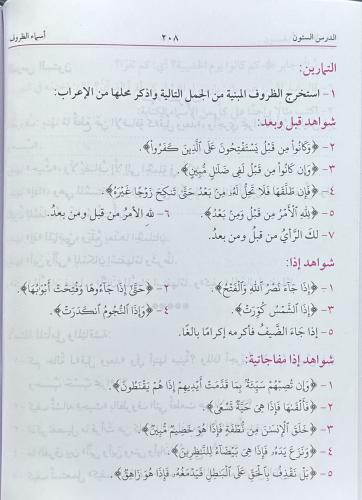 الدرس الستون ٢٠٨ أسماء الظروف
التمارين:
١- استخرج الظروف المبنية من الجمل التالية واذكر محلها من الإعراب:
شواهد قبل وبعد:
٢- ﴿وَكَانُوا مِن قَبْلُ يَسْتَفْتِحُونَ عَلَى الَّذِينَ كَفَرُوا﴾.
٣- ﴿وَإِن كَانُوا مِن قَبْلُ لَفِي ضَلَٰلٍ مُّبِينٍ﴾.
٤- ﴿فَإِن طَلَّقَهَا فَلَا تَحِلُّ لَهُ مِنْ بَعْدُ حَتَّىٰ تَنكِحَ زَوْجًا غَيْرَهُ﴾.
٥- ﴿لِلَّهِ الْأَمْرُ مِن قَبْلُ وَمِنْ بَعْدُ﴾. ٦- لله الأمرُ من قبل ومن بعدُ.
٧- لك الرَّأيُ من قبلُ ومن بعدُ.
شواهد إذا:
١- ﴿إِذَا جَاءَ نَصْرُ اللَّهِ وَالْفَتْحُ﴾. ٢- ﴿حَتَّىٰ إِذَا جَاءُوهَا وَفُتِحَتْ أَبْوَٰبُهَا﴾.
٣- ﴿إِذَا الشَّمْسُ كُوِّرَتْ﴾. ٤- ﴿وَإِذَا النُّجُومُ انكَدَرَتْ﴾.
٥- إذا جَاءَ الضَّيفُ فأكرمه إكرامًا بالغًا.
شواهد إذا مفاجاتية:
١- ﴿وَإِن تُصِبْهُمْ سَيِّئَةٌ بِمَا قَدَّمَتْ أَيْدِيهِمْ إِذَا هُمْ يَقْنَطُونَ﴾.
٢- ﴿فَأَلْقَىٰهَا فَإِذَا هِيَ حَيَّةٌ تَسْعَىٰ﴾.
٣- ﴿خَلَقَ الْإِنسَٰنَ مِن نُّطْفَةٍ فَإِذَا هُوَ خَصِيمٌ مُّبِينٌ﴾.
٤- ﴿وَنَزَعَ يَدَهُ فَإِذَا هِيَ بَيْضَاءُ لِلنَّٰظِرِينَ﴾.
٥- ﴿بَلْ نَقْذِفُ بِالْحَقِّ عَلَى الْبَٰطِلِ فَيَدْمَغُهُ فَإِذَا هُوَ زَاهِقٌ﴾.